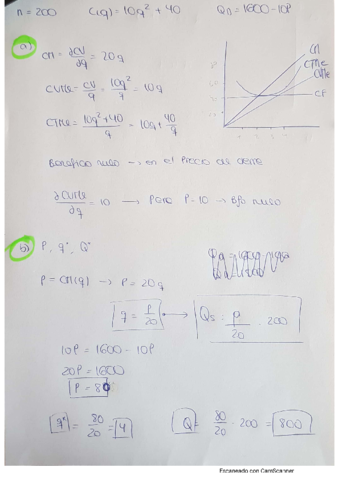 n = 200 C(q) = 10q² + 40 Q_D = 1600 - 10P
a)
CM = ∂CV/∂q = 20q
CVMe = CV/q = 10q²/q = 10q
CTMe = (10q² + 40)/q = 10q + 40/q
CM
CTMe
CVMe
CF
Beneficio nulo → en el Precio de cierre
∂CVMe/∂q = 10 → Para P = 10 → Bº nulo
b) P, q*, Q*
P = CM(q) → P = 20q
q = P/20 → Q_S = P/20 · 200
10P = 1600 - 10P
20P = 1600
P = 80
q* = 80/20 = 4 Q = 80/20 · 200 = 800
Escaneado con CamScanner